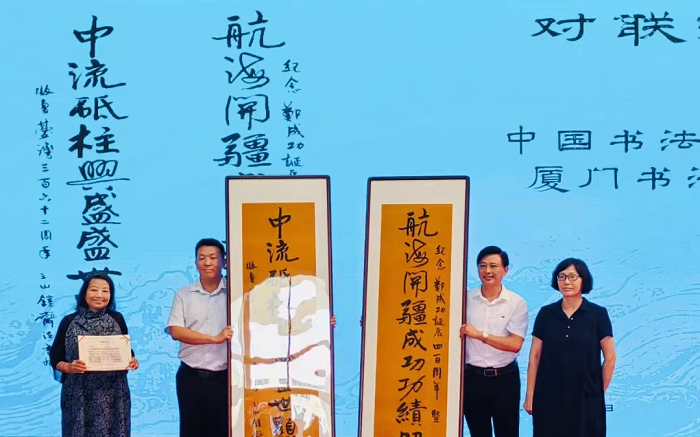 对联
中国书法
厦门书法
航海開疆
紀念鄭成功誕辰
中流砥柱興盛盛世
收复臺灣三百六十二周年
航海開疆成功功績
紀念鄭成功誕辰四百周年暨
中流砥柱世